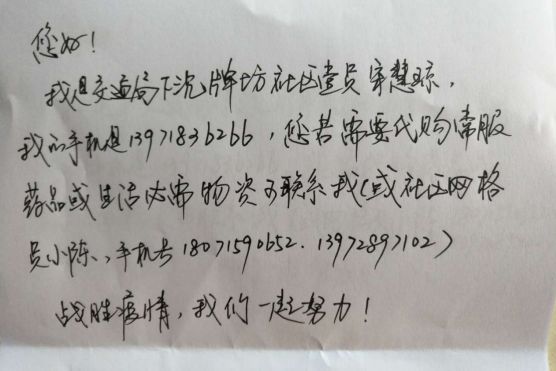 您好！
我是交通局下沉牌坊社区党员宋慧琼，
我的手机是13971836266，您若需要代购常服
药品或生活必需物资可联系我（或社区网格
员小陈、手机号18071590652.13972897102）
战胜疫情，我们一起努力！